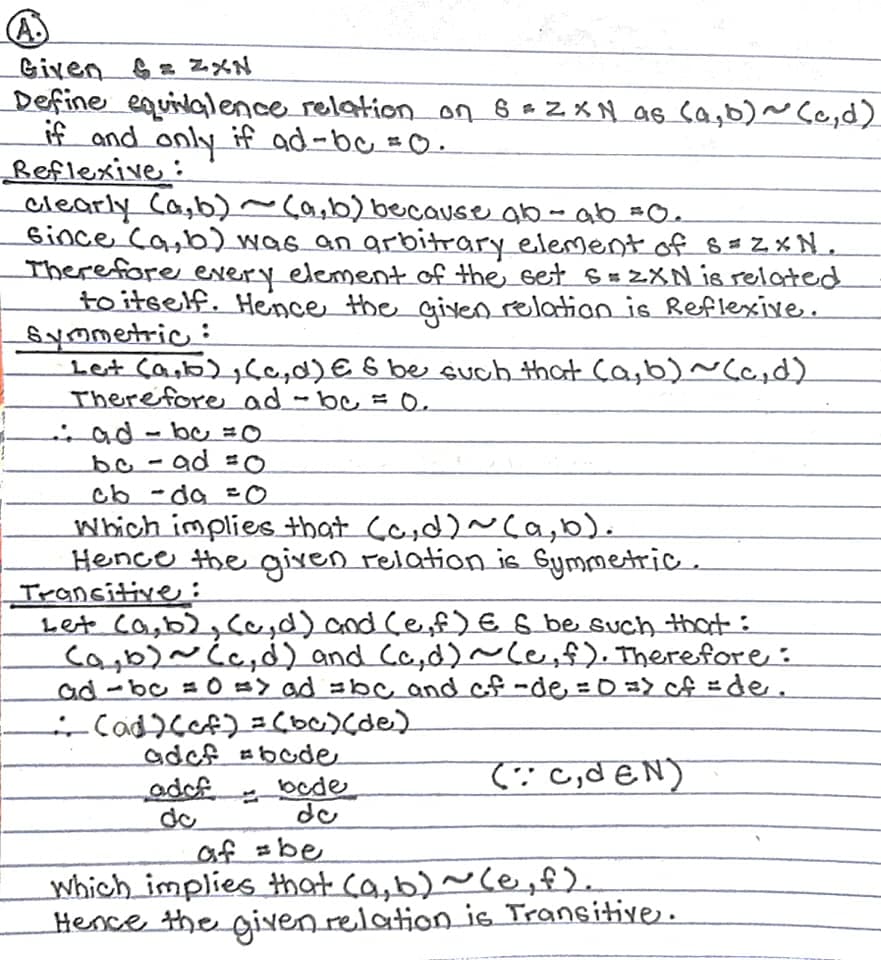 A.
Given S = Z×N
Define equivalence relation on S = Z×N as (a,b)~(c,d)
if and only if ad-bc = 0.
Reflexive :
clearly (a,b) ~ (a,b) because ab - ab = 0.
Since (a,b) was an arbitrary element of S = Z×N.
Therefore every element of the set S = Z×N is related
to itself. Hence the given relation is Reflexive.
Symmetric :
Let (a,b), (c,d) ∈ S be such that (a,b)~(c,d)
Therefore ad - bc = 0.
∴ ad - bc = 0
bc - ad = 0
cb - da = 0
Which implies that (c,d)~(a,b).
Hence the given relation is Symmetric.
Transitive :
Let (a,b), (c,d) and (e,f) ∈ S be such that :
(a,b)~(c,d) and (c,d)~(e,f). Therefore :
ad - bc = 0 => ad = bc and cf - de = 0 => cf = de.
∴ (ad)(cf) = (bc)(de)
adcf = bcde
adcf/dc = bcde/dc (∵ c,d ∈ N)
af = be
Which implies that (a,b)~(e,f).
Hence the given relation is Transitive.